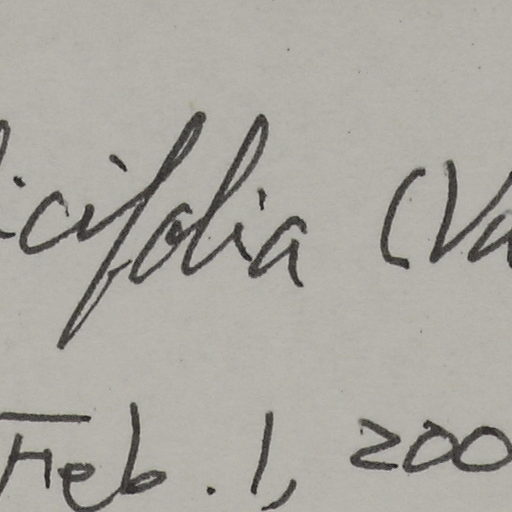 icifolia (Va
Feb. 1, 200